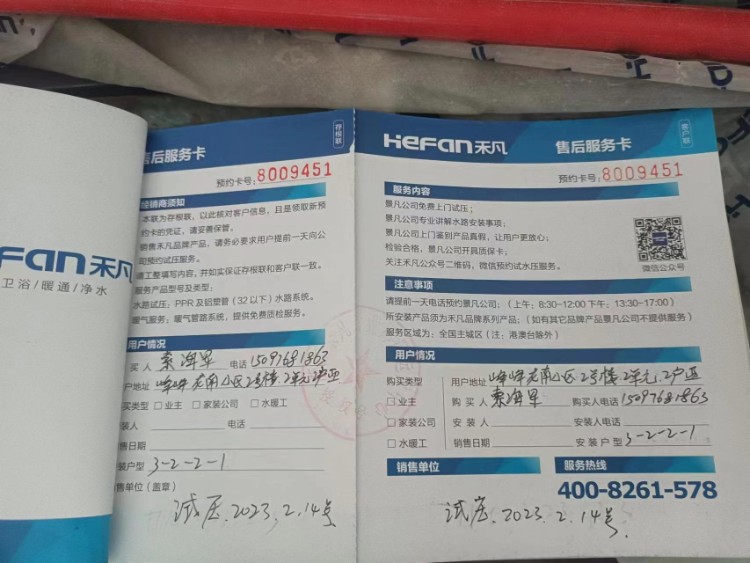 Fan禾凡
卫浴/暖通/净水
售后服务卡
存根联
预约卡号:8009451
经销商须知
本联为存根联,以此核对客户信息,且是领取新预
约卡的凭证,请妥善保管。
销售禾凡品牌产品,请务必要求用户提前一天向公
司预约试压服务。
请工整填写内容,并如实保证存根联和客户联一致。
服务产品型号及类型:
水路试压:PPR及铝塑管(32以下)水路系统。
暖气服务:暖气管路系统,提供免费质检服务。
用户情况
买人 电话15097681863
用户地址 2号楼2单元
购买类型 □业主 □家装公司 □水暖工
装人 电话
售日期
装户型 3-2-2-1
售单位(盖章)
试压.2023.2.14号
HeFan禾凡 售后服务卡
客户联
预约卡号:8009451
服务内容
景凡公司免费上门试压;
景凡公司专业讲解水路安装事项;
景凡公司上门鉴别产品真假,让用户更放心;
检验合格,景凡公司开具质保卡;
关注禾凡公众号二维码,微信预约试水压服务。
微信公众号
注意事项
请提前一天电话预约景凡公司;(上午:8:30-12:00 下午:13:30-17:00)
所安装产品须为禾凡品牌系列产品;(如有其它品牌产品景凡公司不提供服务)
服务区域为:全国主城区(注:港澳台除外)
用户情况
购买类型 用户地址 2号楼2单元
□业主 购买人 购买人电话15097681863
□家装公司 安装人 安装人电话
□水暖工 销售日期 安装户型3-2-2-1
销售单位 服务热线
400-8261-578
试压.2023.2.14号